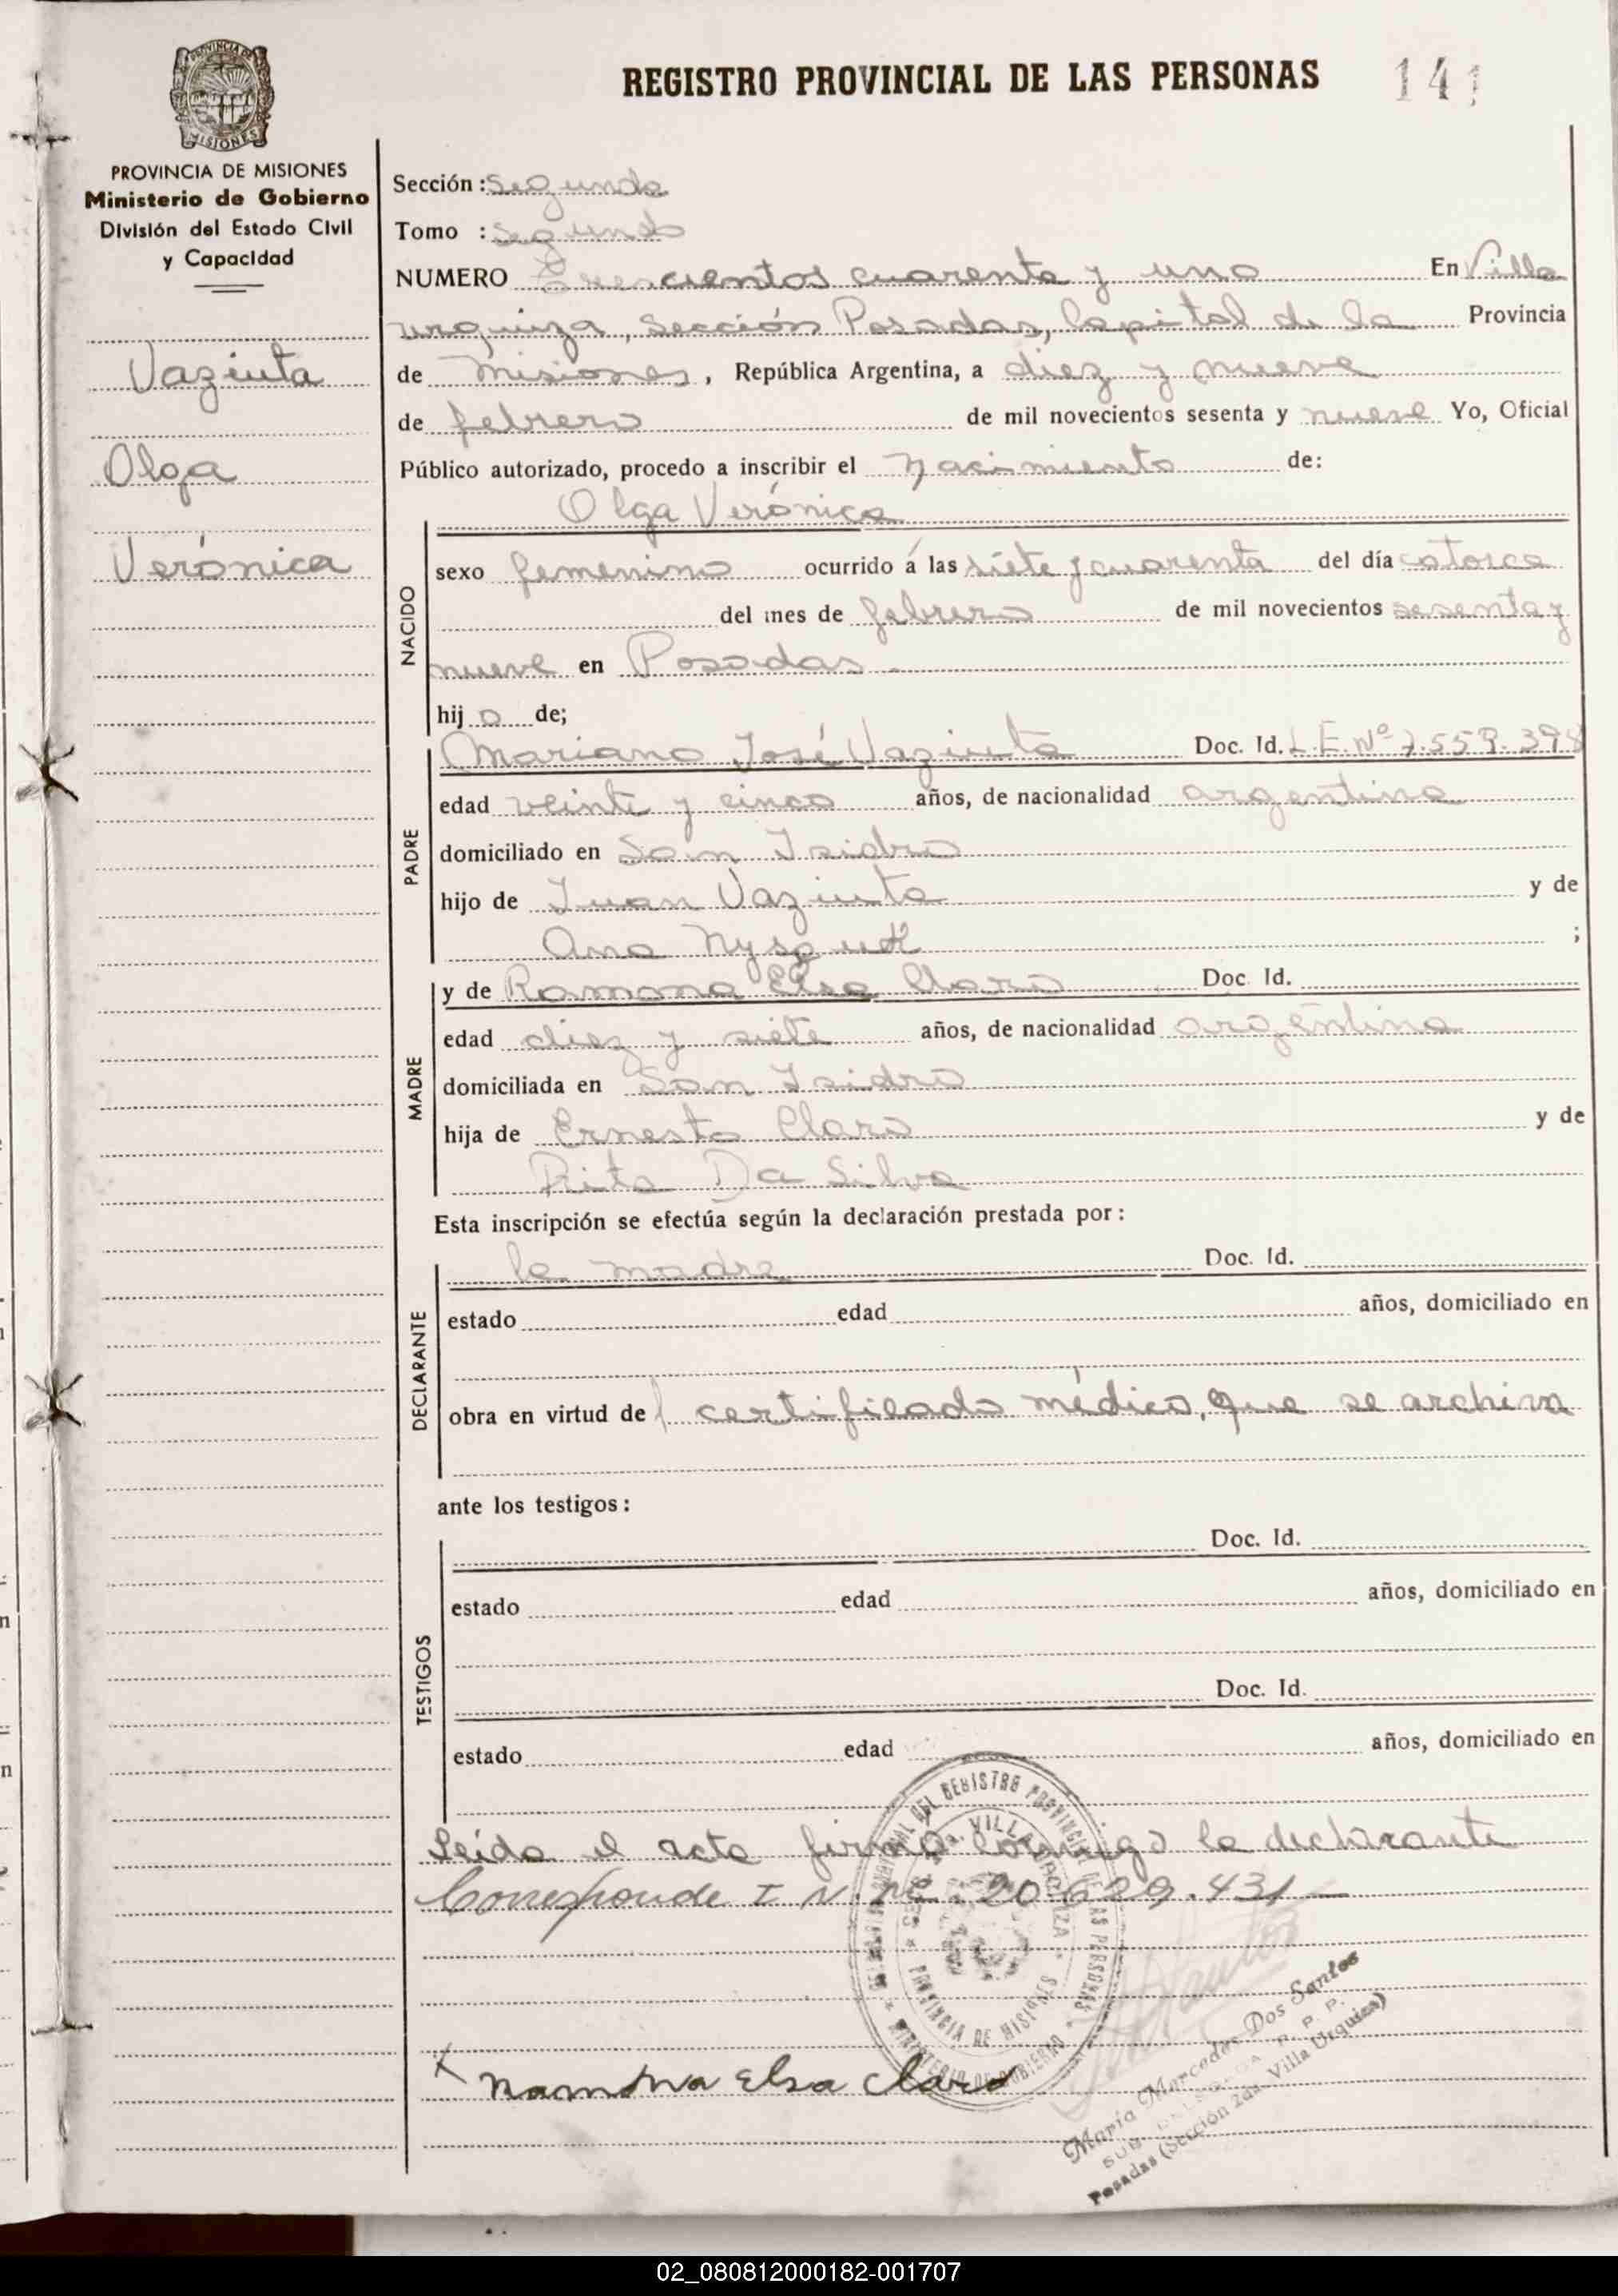 REGISTRO PROVINCIAL DE LAS PERSONAS 141
PROVINCIA DE MISIONES
PROVINCIA DE MISIONES
Ministerio de Gobierno
División del Estado Civil
y Capacidad
Vaziuta
Olga
Verónica
Sección : Segunda
Tomo : Segundo
NUMERO Trescientos cuarenta y uno En Villa
urquiza, Sección Posadas, Capital de la Provincia
de Misiones, República Argentina, a diez y nueve
de febrero de mil novecientos sesenta y nueve Yo, Oficial
Público autorizado, procedo a inscribir el Nacimiento de:
Olga Verónica
NACIDO
sexo femenino ocurrido á las siete y cuarenta del día catorce
del mes de febrero de mil novecientos sesenta y
nueve en Posadas
hij a de;
PADRE
Mariano José Vaziuta Doc. Id. L.E. Nº 7.559.398
edad veinte y cinco años, de nacionalidad argentina
domiciliado en San Isidro
hijo de Juan Vaziuta y de
Ana ;
MADRE
y de Ramona Elsa Claro Doc. Id.
edad diez y siete años, de nacionalidad argentina
domiciliada en San Isidro
hija de Ernesto Claro y de
Rita Da Silva
Esta inscripción se efectúa según la declaración prestada por :
DECLARANTE
la madre Doc. Id.
estado edad años, domiciliado en
obra en virtud de l certificado médico, que se archiva
ante los testigos :
TESTIGOS
Doc. Id.
estado edad años, domiciliado en
Doc. Id.
estado edad años, domiciliado en
Leída el acta firma conmigo la declarante
Corresponde I N. Nº 20.629.431
DEL REGISTRO PROVINCIAL DE LAS PERSONAS
VILLA URQUIZA
PROVINCIA DE MISIONES
MINISTERIO DE GOBIERNO
x Ramona Elsa Claro
María Mercedes Dos Santos
R. P. P.
Posadas (Sección 2da. Villa Urquiza)
02_080812000182-001707